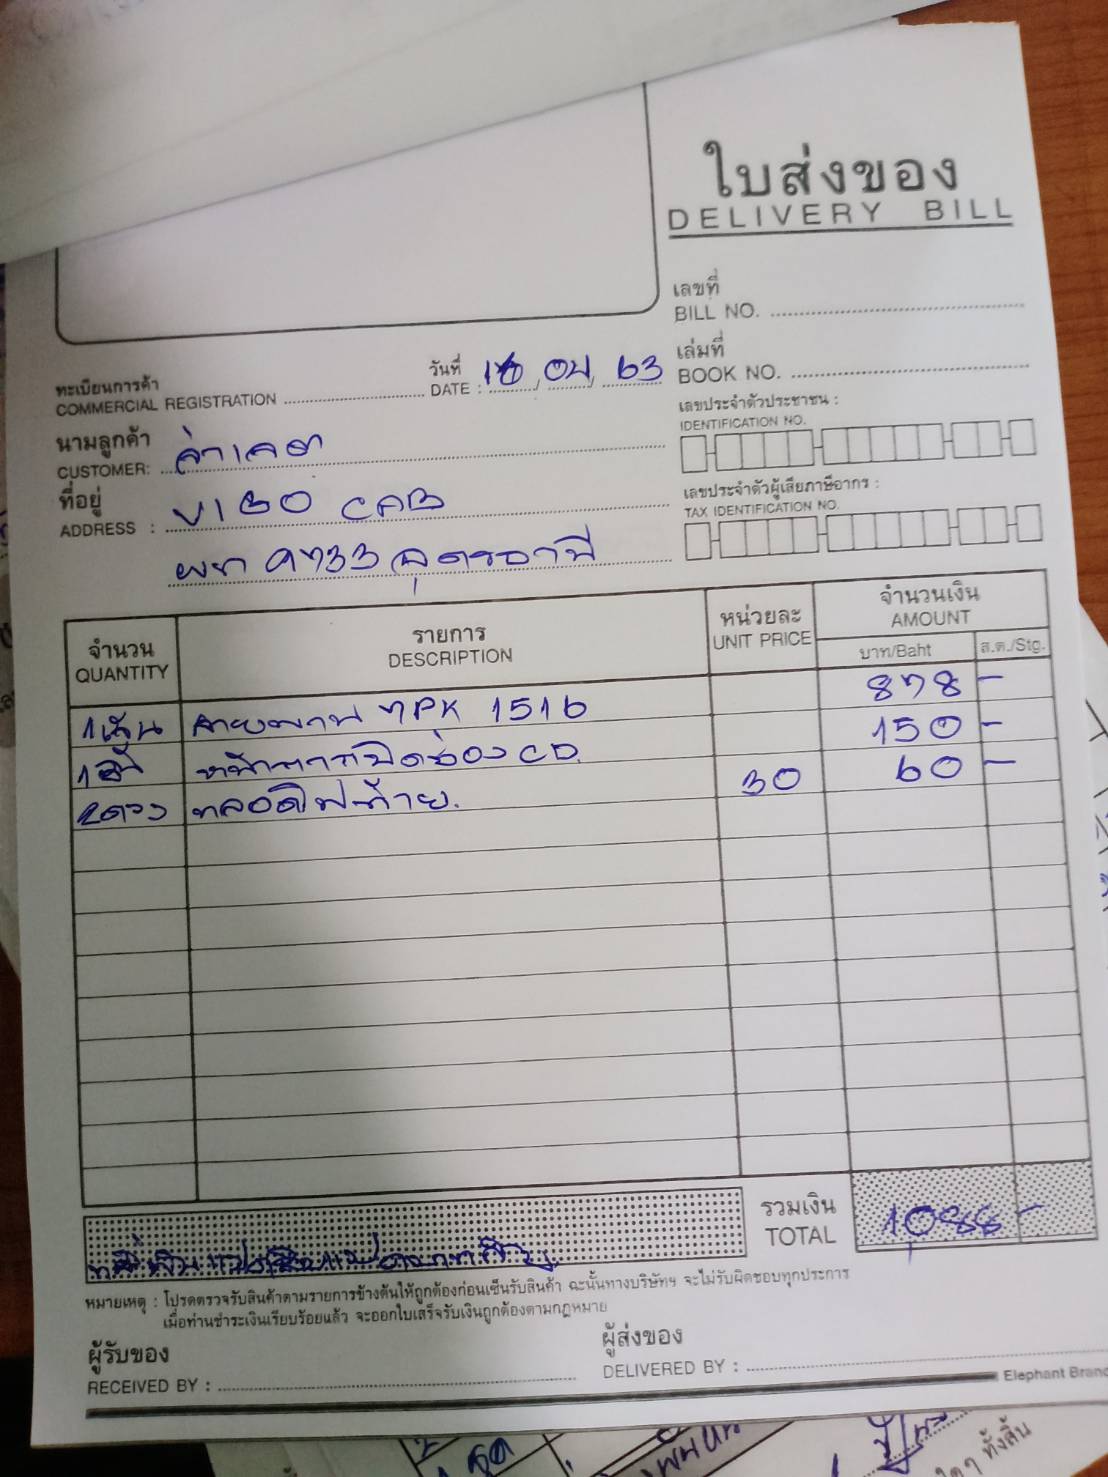 ใบส่งของ
DELIVERY BILL
เลขที่
BILL NO.
เล่มที่
BOOK NO.
ทะเบียนการค้า
COMMERCIAL REGISTRATION
วันที่
DATE : 63
เลขประจำตัวประชาชน :
IDENTIFICATION NO.
นามลูกค้า
CUSTOMER:
ที่อยู่
ADDRESS : VIGO CAB
9733 อุดรธานี
เลขประจำตัวผู้เสียภาษีอากร :
TAX IDENTIFICATION NO.
จำนวน QUANTITY รายการ DESCRIPTION หน่วยละ UNIT PRICE จำนวนเงิน AMOUNT
บาท/Baht ส.ต./Stg.
1 เส้น สายพาน 7PK 1516 878 -
1 อัน หน้ากากปิดช่อง CD 150 -
2 ดวง หลอดไฟท้าย. 30 60 -
รวมเงิน
TOTAL 1088 -
หมายเหตุ : โปรดตรวจรับสินค้าตามรายการข้างต้นให้ถูกต้องก่อนเซ็นรับสินค้า ฉะนั้นทางบริษัทฯ จะไม่รับผิดชอบทุกประการ
เมื่อท่านชำระเงินเรียบร้อยแล้ว จะออกใบเสร็จรับเงินถูกต้องตามกฎหมาย
ผู้รับของ
RECEIVED BY :
ผู้ส่งของ
DELIVERED BY :
Elephant Brand
ใดๆ ทั้งสิ้น